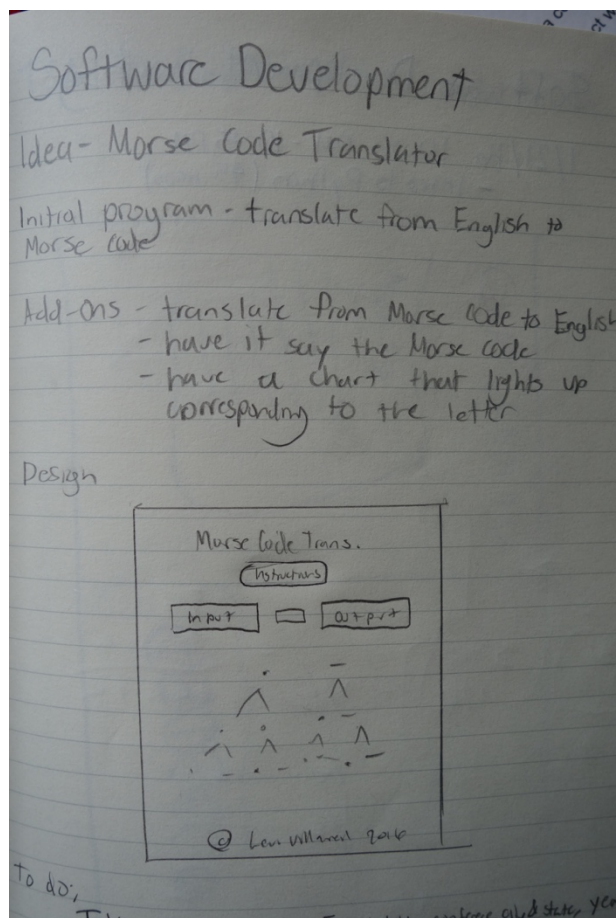 Software Development
Idea - Morse Code Translator
Initial program - translate from English to
Morse code
Add-ons - translate from Morse code to English
- have it say the Morse code
- have a chart that lights up
corresponding to the letter
Design
Morse Code Trans.
Instructions
Input
Output
© Levi Villarreal 2016
To do: